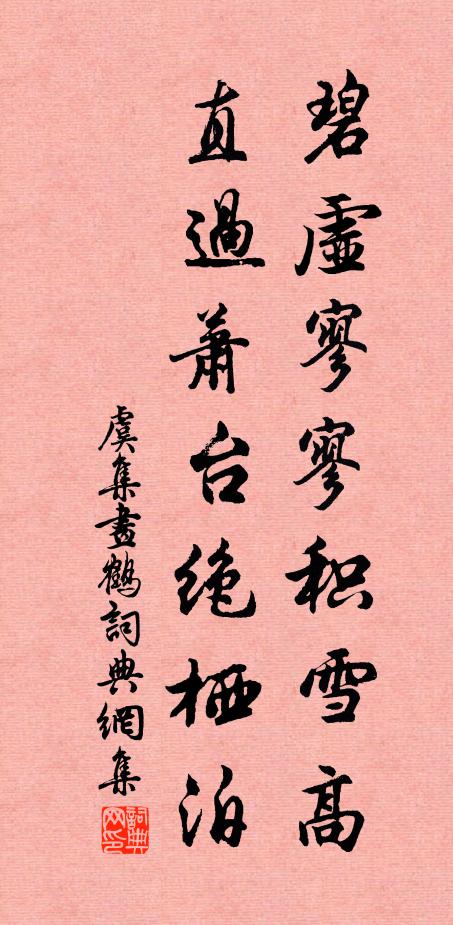 碧虛寥寥积雪高
直過蕭台絶栖泊
虞集畫鶴詞典網集
詞典网印